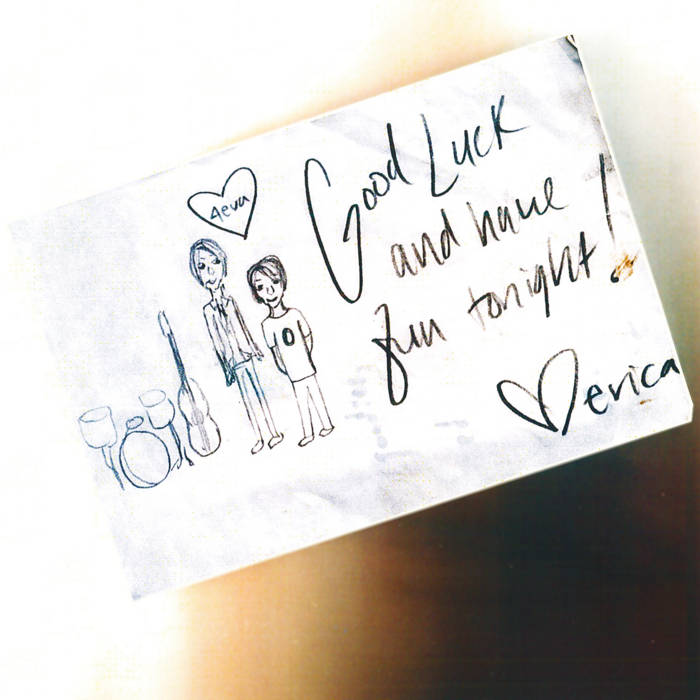 4eva
Good Luck
and have
fun tonight!
erica